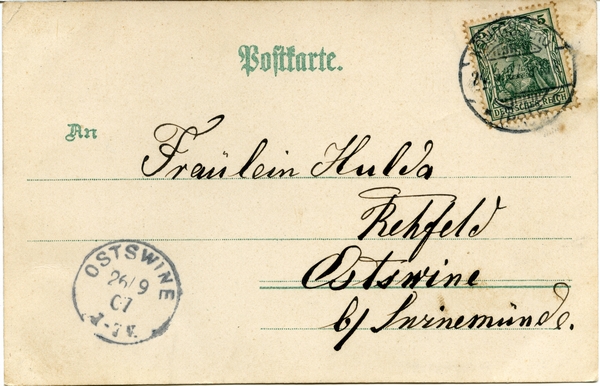 Postkarte.
5
DEUTSCHES REICH
An
Fräulein Hulda
Rehfeld
Ostswine
b/ Swinemünde.
OSTSWINE
26/9
07